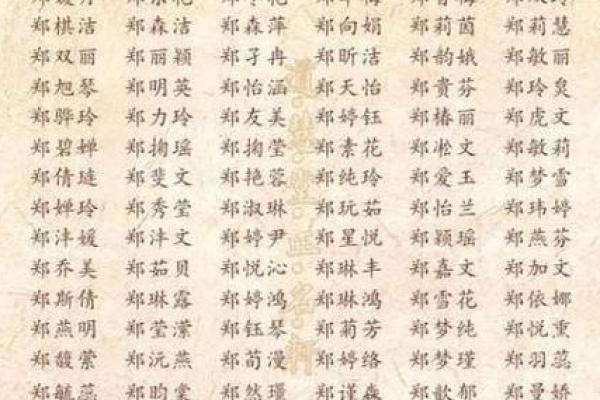 郑棋洁 郑森洁 郑森萍 郑向娟 郑莉茵 郑莉慧
郑双丽 郑丽颖 郑孑冉 郑昕洁 郑韵娥 郑敏丽
郑旭琴 郑明英 郑怡涵 郑天怡 郑贵芬 郑玲炅
郑骅玲 郑力玲 郑友美 郑婷钰 郑椿丽 郑虎文
郑碧婵 郑掬瑶 郑掬莹 郑素花 郑凇文 郑敏莉
郑倩琏 郑斐文 郑艳蓉 郑纯玲 郑爱玉 郑梦雪
郑婵玲 郑秀莹 郑淑琳 郑玩茹 郑怡兰 郑玮婷
郑沣媛 郑沣文 郑婷尹 郑星悦 郑颖瑶 郑燕芬
郑乔美 郑茹贝 郑悦沁 郑琳丰 郑嘉文 郑加文
郑斯倩 郑琳露 郑婷鸿 郑琳鸿 郑雪花 郑依娜
郑燕明 郑莹潆 郑钰琴 郑菊芳 郑梦纯 郑悦熏
郑馥萦 郑沅燕 郑荀漫 郑婷络 郑梦瑾 郑羽蕊
郑毓蕊 郑昀棠 郑然瑾 郑谨森 郑歆郁 郑曼娇